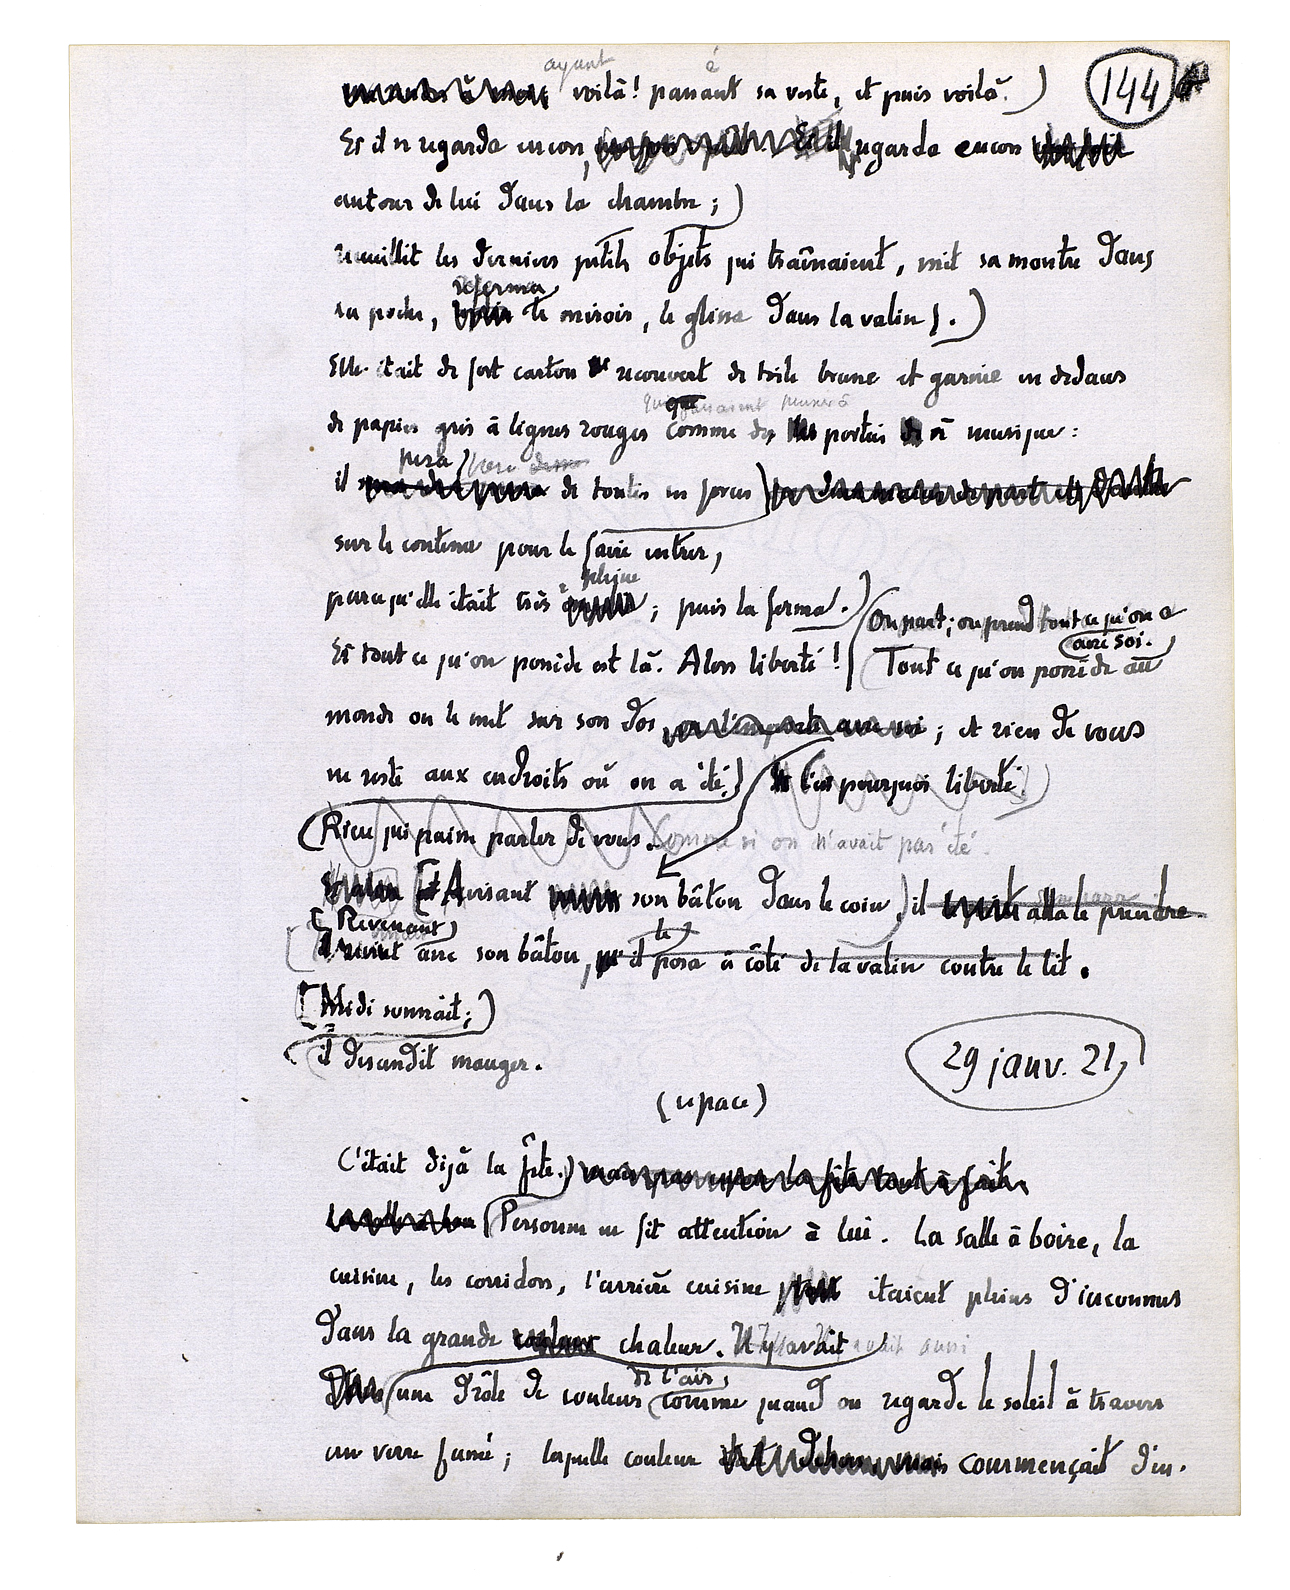 ayant à
voilà ! passant sa veste, et puis voilà. )
144
Et il regarde encore, regarde encore
autour de lui dans la chambre ; )
recueillit les derniers petits objets qui traînaient, mit sa montre dans
referma
sa poche, le miroir, le glissa dans la valise ). )
Elle était de fort carton recouvert de toile brune et garnie en dedans
qui faisaient penser à
de papier gris à lignes rouges comme des portées à musique :
pesa
il de toutes ses forces )
sur le contenu pour le faire entrer,
pleine
parce qu'elle était très ; puis la ferma. )
(On part ; on prend tout ce qu'on a
avec soi.
Et tout ce qu'on possède est là. Alors liberté ! (Tout ce qu'on possède au
monde on le met sur son dos, on l'emporte avec soi ; et rien de vous
ne reste aux endroits où on a été ) C'est pourquoi liberté. )
(Rien qui puisse parler de vous. Comme si on n'avait pas été.
Et alors [et Avisant son bâton dans le coin, ) il alla le prendre
[Revenant )
Il revint avec son bâton, qu'il le posa à côté de la valise contre le lit.
[Midi sonnait ; )
il descendit manger.
29 janv. 21,
(espace)
C'était déjà la fête. ) mais pas encore la fête tout à fait.
(Personne ne fit attention à lui. La salle à boire, la
cuisine, les corridors, l'arrière cuisine étaient pleins d'inconnus
dans la grande chaleur. Il y avait avait aussi
de l'air,
(une drôle de couleur (comme quand on regarde le soleil à travers
un verre fumé ; laquelle couleur dehors, mais commençait d'en.